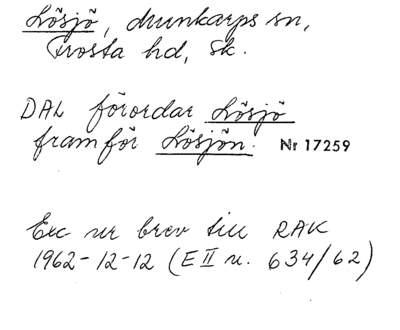 Lösjö, Munkarps sn,
Frosta hd, Sk.
DAL förordar Lösjö
framför Lösjön. Nr 17259
Exc ur brev till RAK
1962-12-12 (E II u. 634/62)